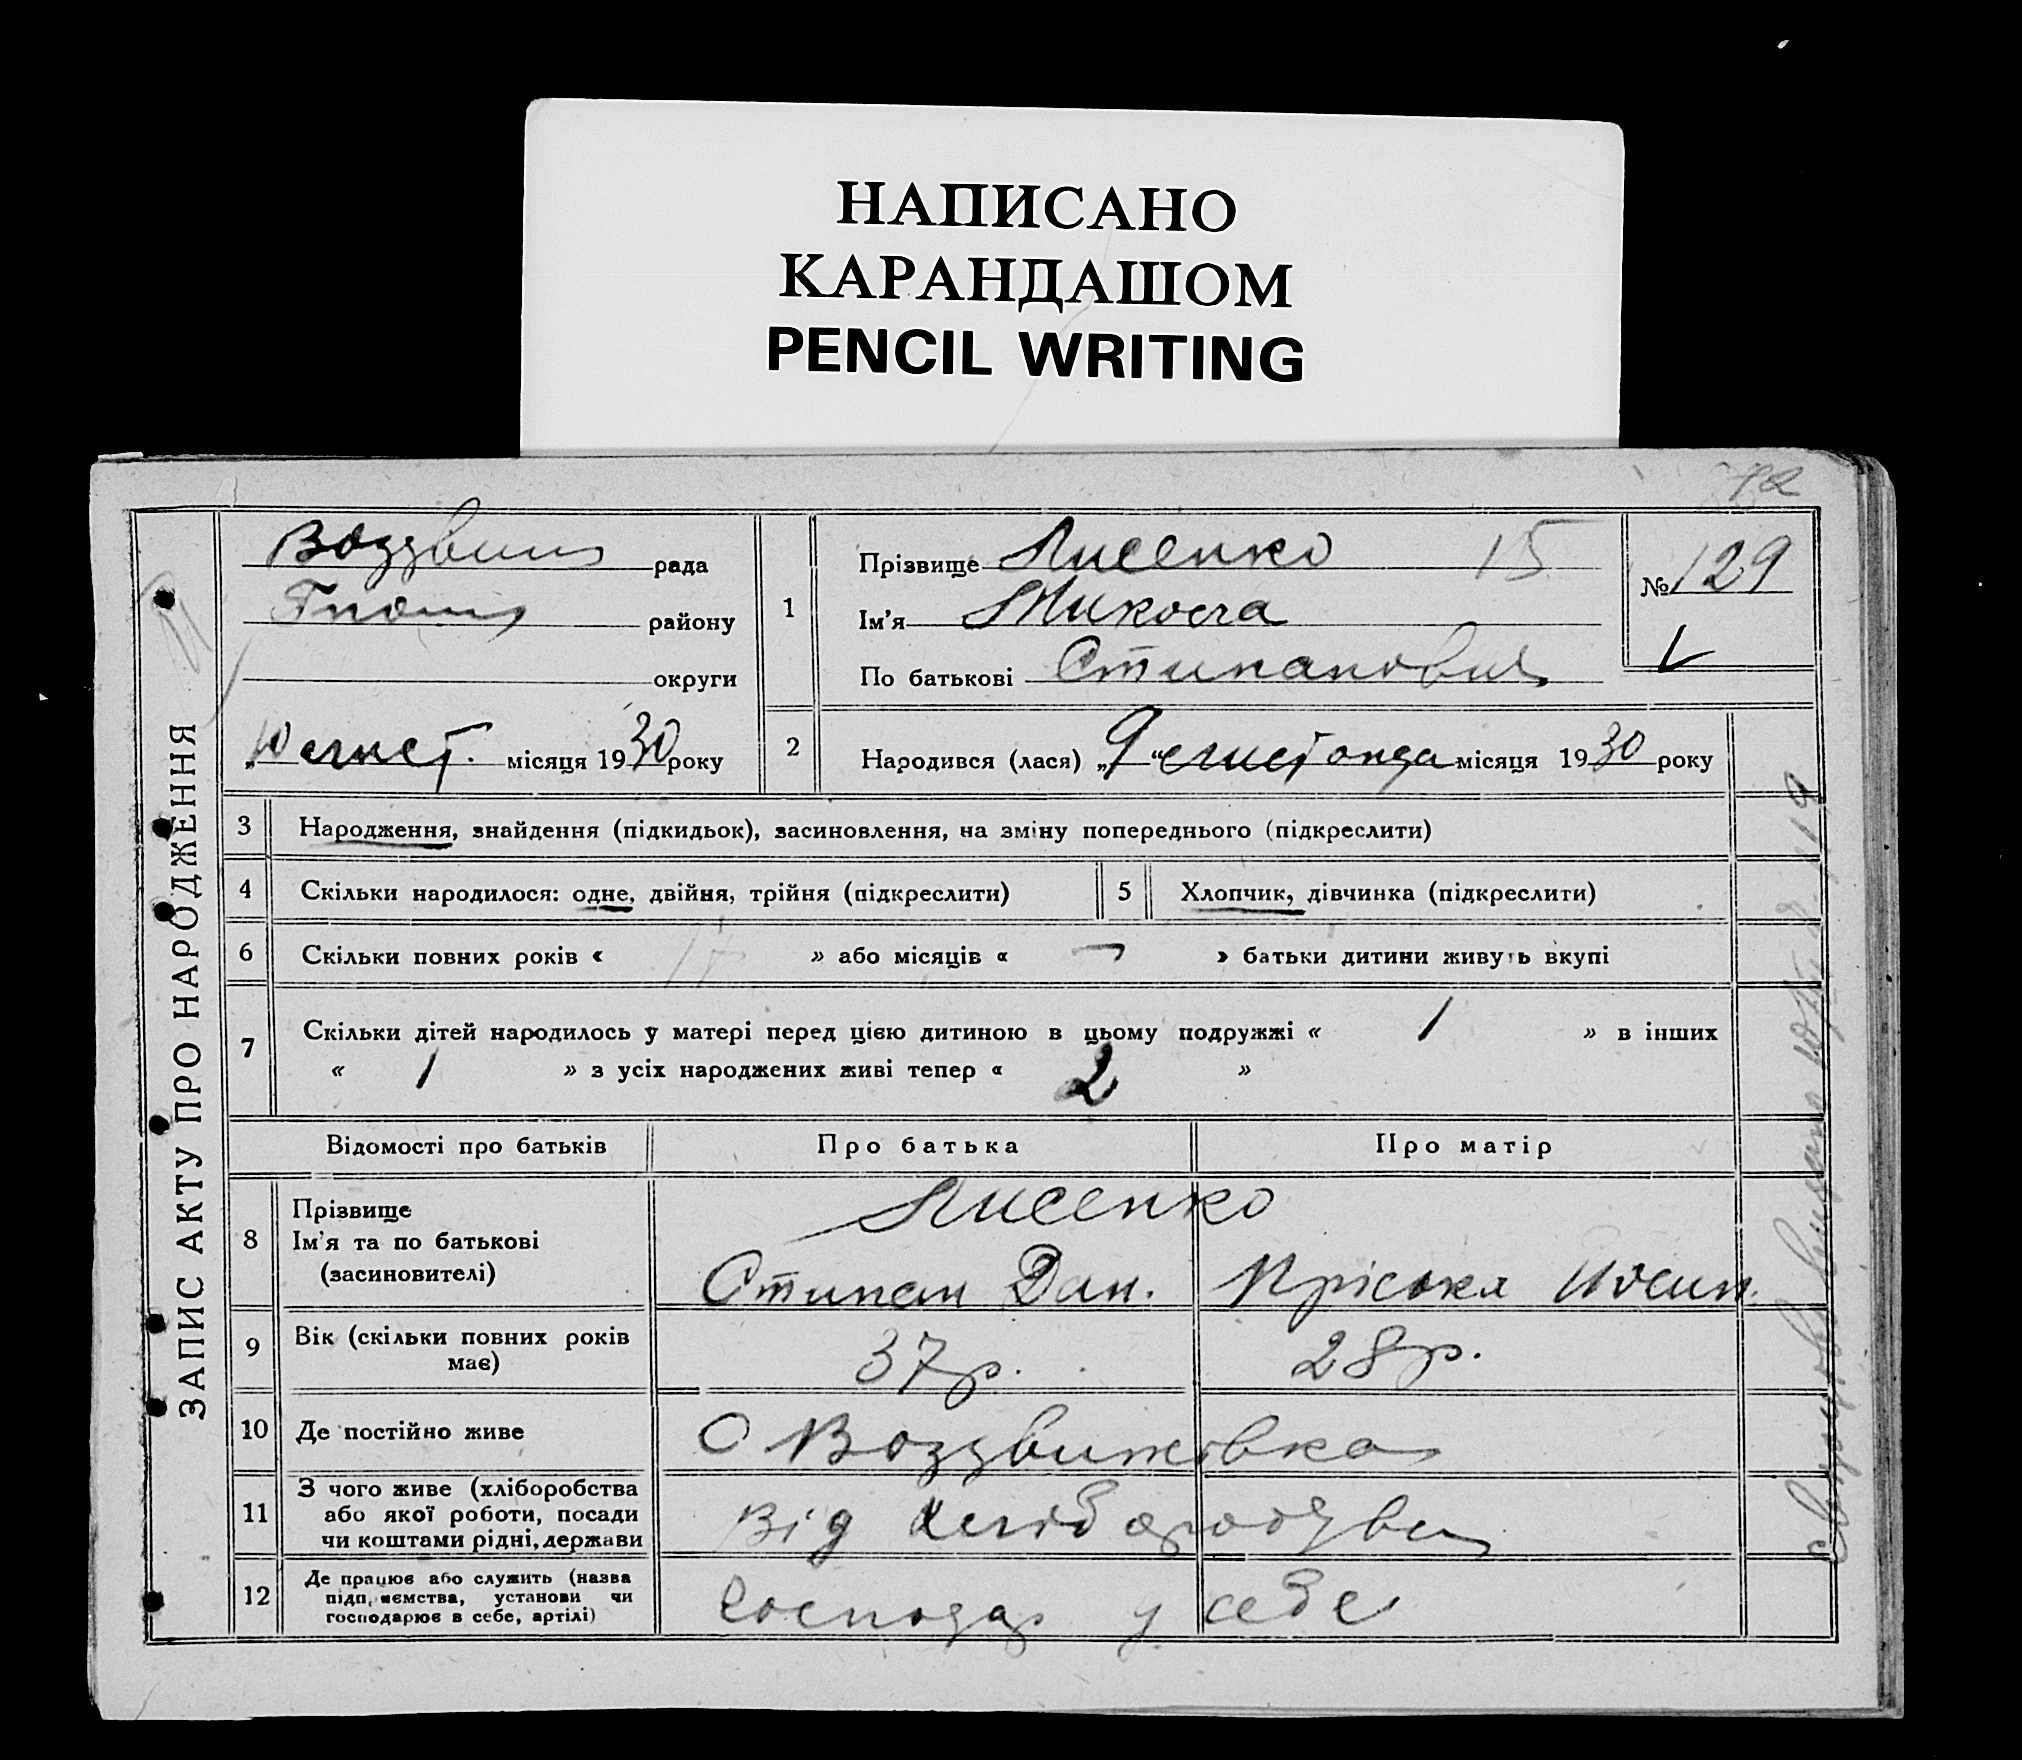 НАПИСАНО
КАРАНДАШОМ
PENCIL WRITING
72
ЗАПИС АКТУ ПРО НАРОДЖЕННЯ
Воздвиж рада
району
округи
„10 лист. місяця 1930 року
1
Прізвище Лисенко 15
Ім'я Микола
По батькові Стипанович
№ 129
2
Народився (лася) „9“ листопада місяця 1930 року
3 Народження, знайдення (підкидьок), засиновлення, на зміну попереднього (підкреслити)
4 Скільки народилося: одне, двійня, трійня (підкреслити) 5 Хлопчик, дівчинка (підкреслити)
6 Скільки повних років « » або місяців « — » батьки дитини живуть вкупі
7 Скільки дітей народилось у матері перед цією дитиною в цьому подружжі « 1 » в інших
« 1 » з усіх народжених живі тепер « 2 »
Відомості про батьків Про батька Про матір
8 Прізвище
Ім'я та по батькові
(засиновителі)
Лисенко
Стипан Дан. Пріська Йосип.
9 Вік (скільки повних років
має)
37 р. 28 р.
10 Де постійно живе С Воздвижівка
11 З чого живе (хліборобства
або якої роботи, посади
чи коштами рідні, держави
Від хліборобства
12 Де працює або служить (назва
підприємства, установи чи
господарює в себе, артілі)
Господар у себе